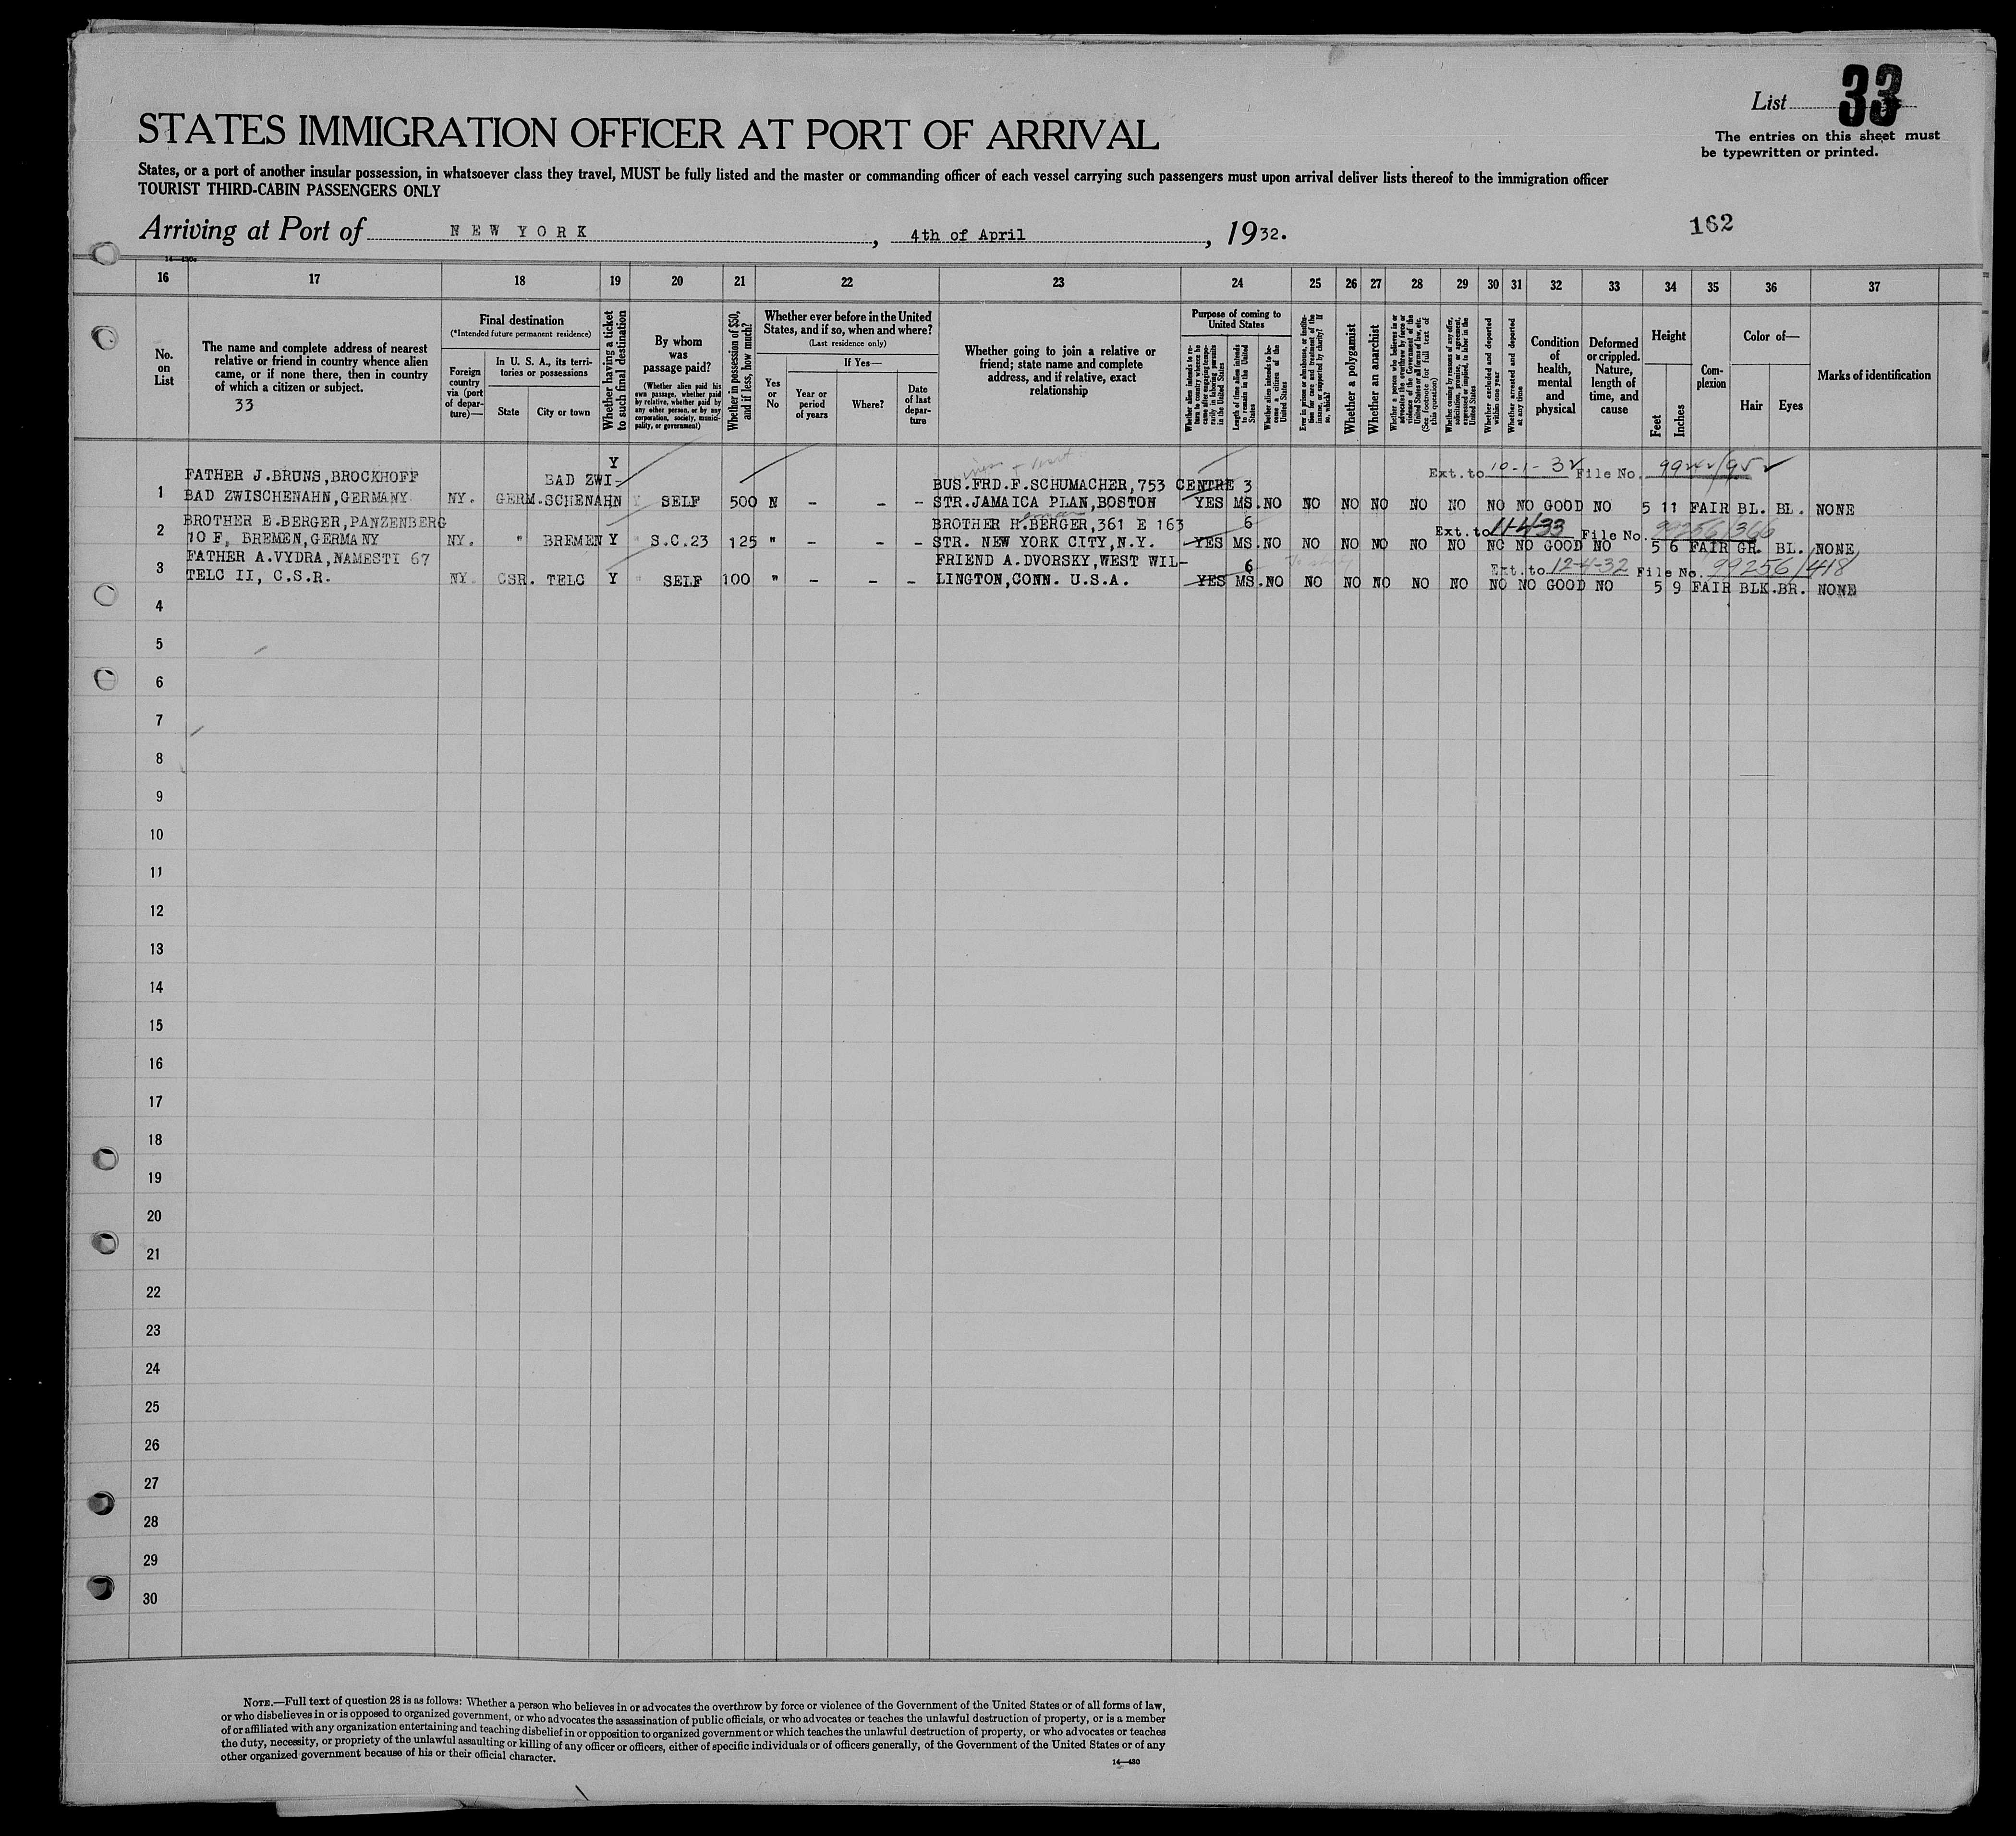 List 33
The entries on this sheet must
be typewritten or printed.
STATES IMMIGRATION OFFICER AT PORT OF ARRIVAL
States, or a port of another insular possession, in whatsoever class they travel, MUST be fully listed and the master or commanding officer of each vessel carrying such passengers must upon arrival deliver lists thereof to the immigration officer
TOURIST THIRD-CABIN PASSENGERS ONLY
Arriving at Port of NEW YORK, 4th of April, 1932.
162
16 17 18 19 20 21 22 23 24 25 26 27 28 29 30 31 32 33 34 35 36 37
No.
on
List
The name and complete address of nearest
relative or friend in country whence alien
came, or if none there, then in country
of which a citizen or subject.
33
Final destination
(*Intended future permanent residence)
Foreign
country
via (port
of depar-
ture)—
In U. S. A., its terri-
tories or possessions
State
City or town
Whether having a ticket
to such final destination
By whom
was
passage paid?
(Whether alien paid his
own passage, whether paid
by relative, whether paid by
any other person, or by any
corporation, society, munici-
pality, or government)
Whether in possession of $50,
and if less, how much?
Whether ever before in the United
States, and if so, when and where?
(Last residence only)
Yes
or
No
If Yes—
Year or
period
of years
Where?
Date
of last
depar-
ture
Whether going to join a relative or
friend; state name and complete
address, and if relative, exact
relationship
Purpose of coming to
United States
Whether alien intends to re-
turn to country whence he
came after engaging tempo-
rarily in laboring pursuits
in the United States
Length of time alien intends
to remain in the United
States
Whether alien intends to be-
come a citizen of the
United States
Ever in prison or almshouse, or institu-
tion for care and treatment of the
insane, or supported by charity? If
so, which?
Whether a polygamist
Whether an anarchist
Whether a person who believes in or
advocates the overthrow by force or
violence of the Government of the
United States or all forms of law, etc.
(See footnote for full text of
this question)
Whether coming by reasons of any offer,
solicitation, promise, or agreement,
expressed or implied, to labor in the
United States
Whether excluded and deported
within one year
Whether arrested and deported
at any time
Condition
of
health,
mental
and
physical
Deformed
or crippled.
Nature,
length of
time, and
cause
Height
Feet
Inches
Com-
plexion
Color of—
Hair
Eyes
Marks of identification
Y
FATHER J.BRUNS,BROCKHOFF BAD ZWI- BUS.FRD.F.SCHUMACHER,753 CENTRE 3 Ext. to 10-1-32 File No.
1 BAD ZWISCHENAHN,GERMANY NY. GERM.SCHENAHN Y SELF 500 N - - - STR.JAMAICA PLAN,BOSTON YES MS.NO NO NO NO NO NO NO NO GOOD NO 5 11 FAIR BL. BL. NONE
BROTHER E.BERGER,PANZENBERG BROTHER H.BERGER,361 E 163 6 Ext. to 11-4-33 File No. 99256/366
2 10 F, BREMEN,GERMANY NY. " BREMEN Y " S.C.23 125 " - - - STR. NEW YORK CITY,N.Y. YES MS.NO NO NO NO NO NO NO NO GOOD NO 5 6 FAIR GR. BL. NONE
FATHER A.VYDRA,NAMESTI 67 FRIEND A.DVORSKY,WEST WIL- 6 Ext. to 12-4-32 File No. 99256/418
3 TELC II, C.S.R. NY. CSR. TELC Y " SELF 100 " - - - LINGTON,CONN. U.S.A. YES MS.NO NO NO NO NO NO NO NO GOOD NO 5 9 FAIR BLK.BR. NONE
4
5
6
7
8
9
10
11
12
13
14
15
16
17
18
19
20
21
22
23
24
25
26
27
28
29
30
NOTE.—Full text of question 28 is as follows: Whether a person who believes in or advocates the overthrow by force or violence of the Government of the United States or of all forms of law,
or who disbelieves in or is opposed to organized government, or who advocates the assassination of public officials, or who advocates or teaches the unlawful destruction of property, or is a member
of or affiliated with any organization entertaining and teaching disbelief in or opposition to organized government or which teaches the unlawful destruction of property, or who advocates or teaches
the duty, necessity, or propriety of the unlawful assaulting or killing of any officer or officers, either of specific individuals or of officers generally, of the Government of the United States or of any
other organized government because of his or their official character.
14—430